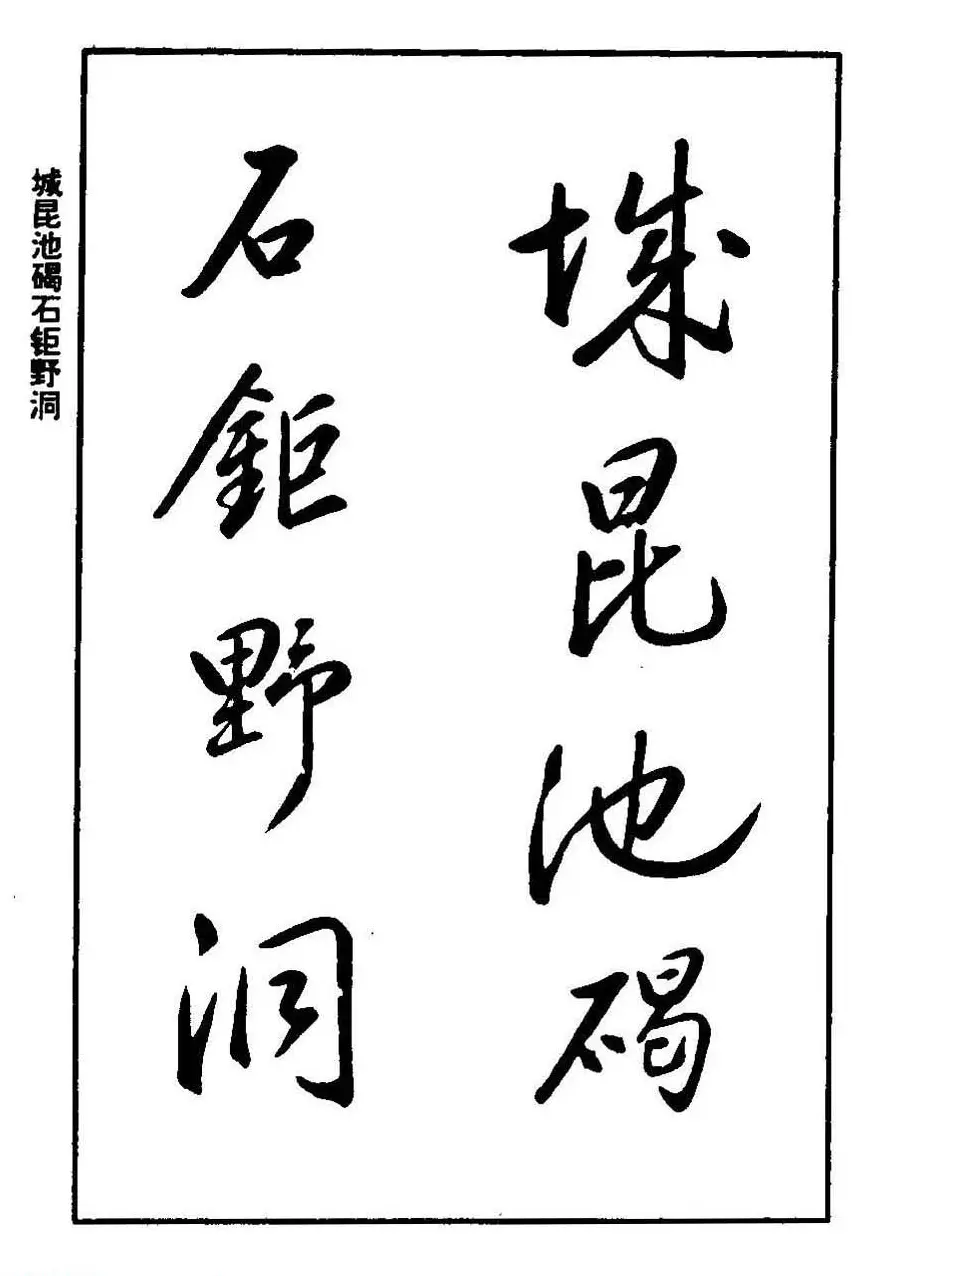 城昆池碣
石鉅野洞
城昆池碣石钜野洞